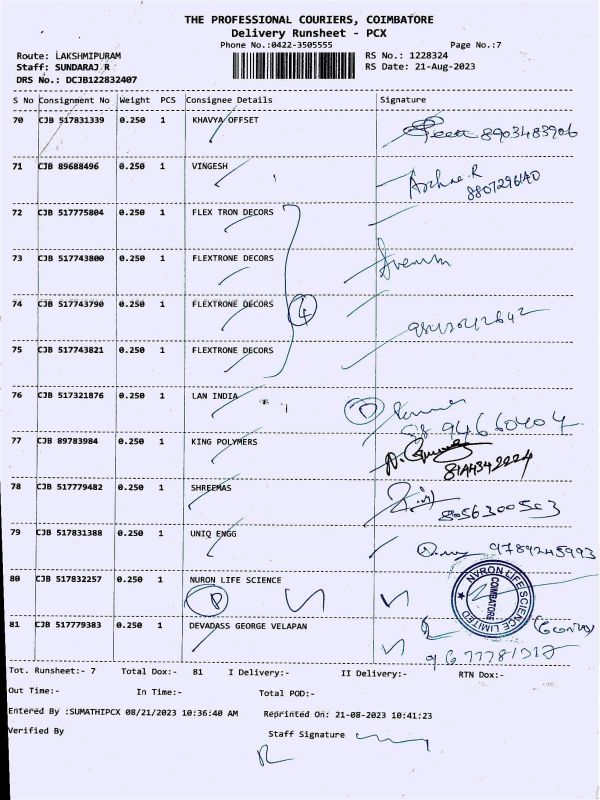 THE PROFESSIONAL COURIERS, COIMBATORE
Delivery Runsheet - PCX
Phone No.:0422-3505555 Page No.:7
Route: LAKSHMIPURAM RS No.: 1228324
Staff: SUNDARAJ R RS Date: 21-Aug-2023
DRS No.: DCJB122832407
S No Consignment No Weight PCS Consignee Details Signature
70 CJB 517831339 0.250 1 KHAVYA OFFSET
8903483906
71 CJB 89688496 0.250 1 VINGESH
72 CJB 517775804 0.250 1 FLEX TRON DECORS
73 CJB 517743800 0.250 1 FLEXTRONE DECORS
74 CJB 517743790 0.250 1 FLEXTRONE DECORS 4
75 CJB 517743821 0.250 1 FLEXTRONE DECORS
76 CJB 517321876 0.250 1 LAN INDIA
77 CJB 89783984 0.250 1 KING POLYMERS
78 CJB 517779482 0.250 1 SHREEMAS
8056300503
79 CJB 517831388 0.250 1 UNIQ ENGG
80 CJB 517832257 0.250 1 NURON LIFE SCIENCE
NVRON LIFE SCIENCE LIMITED
COIMBATORE
81 CJB 517779383 0.250 1 DEVADASS GEORGE VELAPAN
Tot. Runsheet:- 7 Total Dox:- 81 I Delivery:- II Delivery:- RTN Dox:-
Out Time:- In Time:- Total POD:-
Entered By :SUMATHIPCX 08/21/2023 10:36:40 AM Reprinted On: 21-08-2023 10:41:23
Verified By Staff Signature